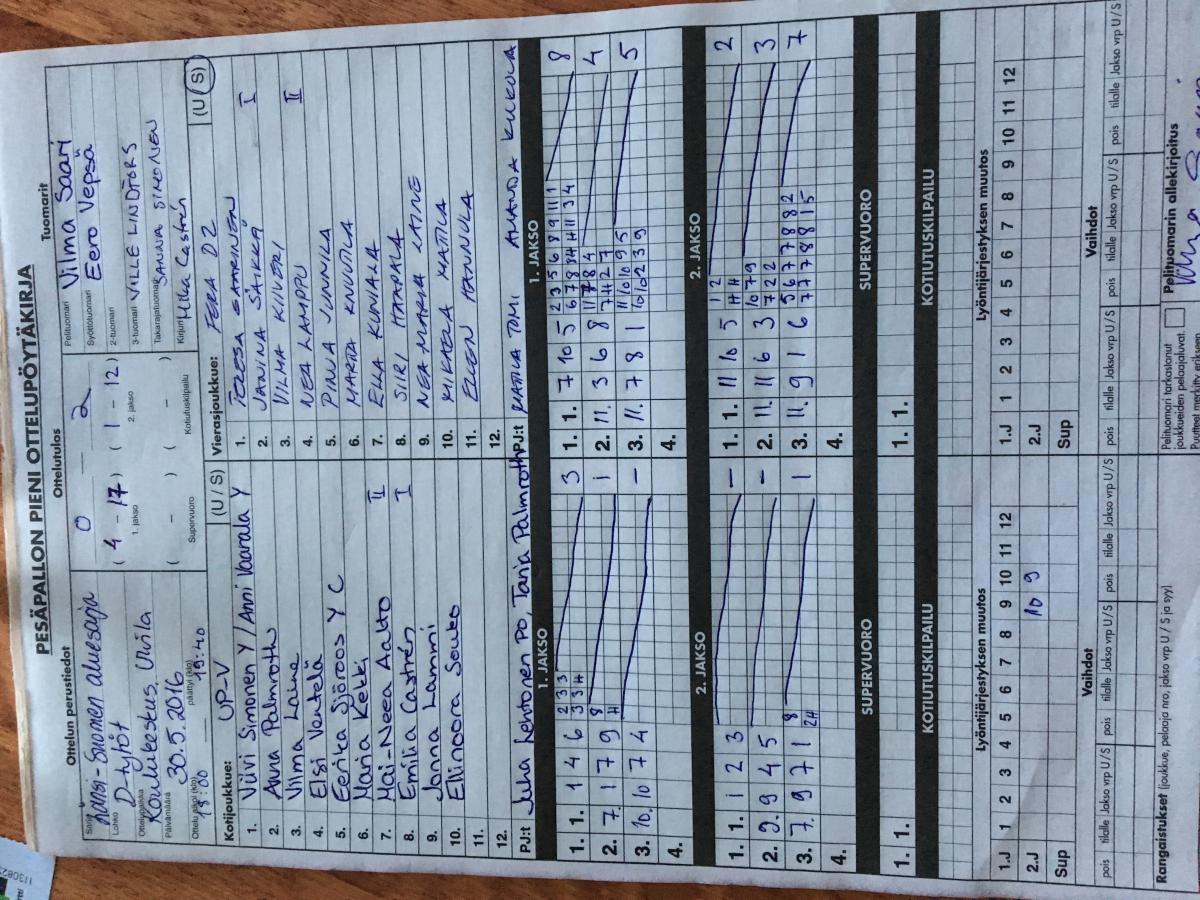 PESÄPALLON PIENI OTTELUPÖYTÄKIRJA
Ottelun perustiedot
Ottelutulos
Tuomarit
Sarja Länsi-Suomen aluesarja
Lohko D-tytöt
Ottelupaikka Koulukeskus, Ulvila
Päivämäärä 30.5.2016
Ottelu alkoi (klo) 18:00 päättyi (klo) 19:40
0 2
( 4 - 17 ) ( 1 - 12 )
1. jakso 2. jakso
( - ) ( - )
Supervuoro Kotiutuskilpailu
Pelituomari Vilma Saari
Syöttötuomari Eero Vepsä
2-tuomari
3-tuomari VILLE LINDFORS
Takarajatuomari SANNA SIMONEN
Kirjuri Mika Castrén
Kotijoukkue: UP-V (U / S)
1. Viivi Simonen Y / Anni Vaarala Y
2. Anna Palmroth
3. Vilma Laine
4. Elsi Ventelä
5. Eerika Sjöroos Y C
6. Maria Kekki
7. Mai-Neea Aalto II
8. Emilia Castrén I
9. Janna Lammi
10. Ellinoora Souko
11.
12.
PJ:t Juha Lehtonen PO, Tarja Palmroth
Vierasjoukkue: FERA D2 (U / S)
1.
2. JANINA SÄIKKÄ I
3. VILMA KIIVERI II
4. NEA LAMPPU
5. PINJA JUNNILA
6. MARTA KNUUTILA
7. ELLA KUVALA
8. SIIRI HAAPALA
9. NEA-MARIA LAINE
10. MIKAELA MATTILA
11. ELLEN HANNULA
12.
PJ:t TOMI AMANDA KUKOLA
1. JAKSO
1. 1. 1 4 6
2 3 3
3 3 4
3
2. 7. 1 7 9
8
4
1
3. 10. 10 7 4 -
4.
1. JAKSO
1. 1. 7 10 5
2 3 5 6 8 9 11 1
6 7 8 8 4 11 3 4
8
2. 11. 3 6 8
4
3. 11. 7 8 1
11 10 10 9 5
10 10 2 3 9
5
4.
2. JAKSO
1. 1. 1 2 3 -
2. 9. 9 4 5 -
3. 7. 9 7 1
8
24
1
4.
2. JAKSO
1. 1. 11 10 5
1 2
4 4
2
2. 11. 11 6 3
10 7 9
7 2 2
3
3. 11. 9 1 6
5 6 7 7 8 8 2
7 7 7 8 8 1 5
7
4.
SUPERVUORO
1. 1.
SUPERVUORO
1. 1.
KOTIUTUSKILPAILU
KOTIUTUSKILPAILU
Lyöntijärjestyksen muutos
1.J 1 2 3 4 5 6 7 8 9 10 11 12
2.J 10 9
Sup
Lyöntijärjestyksen muutos
1.J 1 2 3 4 5 6 7 8 9 10 11 12
2.J
Sup
Vaihdot
pois tilalle Jakso vrp U / S pois tilalle Jakso vrp U / S pois tilalle Jakso vrp U / S
Vaihdot
pois tilalle Jakso vrp U / S pois tilalle Jakso vrp U / S pois tilalle Jakso vrp U / S
Rangaistukset (joukkue, pelaaja nro, jakso vrp U / S ja syy)
Pelituomari tarkastanut
joukkueiden pelaajaluvat.
Puutteet merkitty erikseen
Pelituomarin allekirjoitus